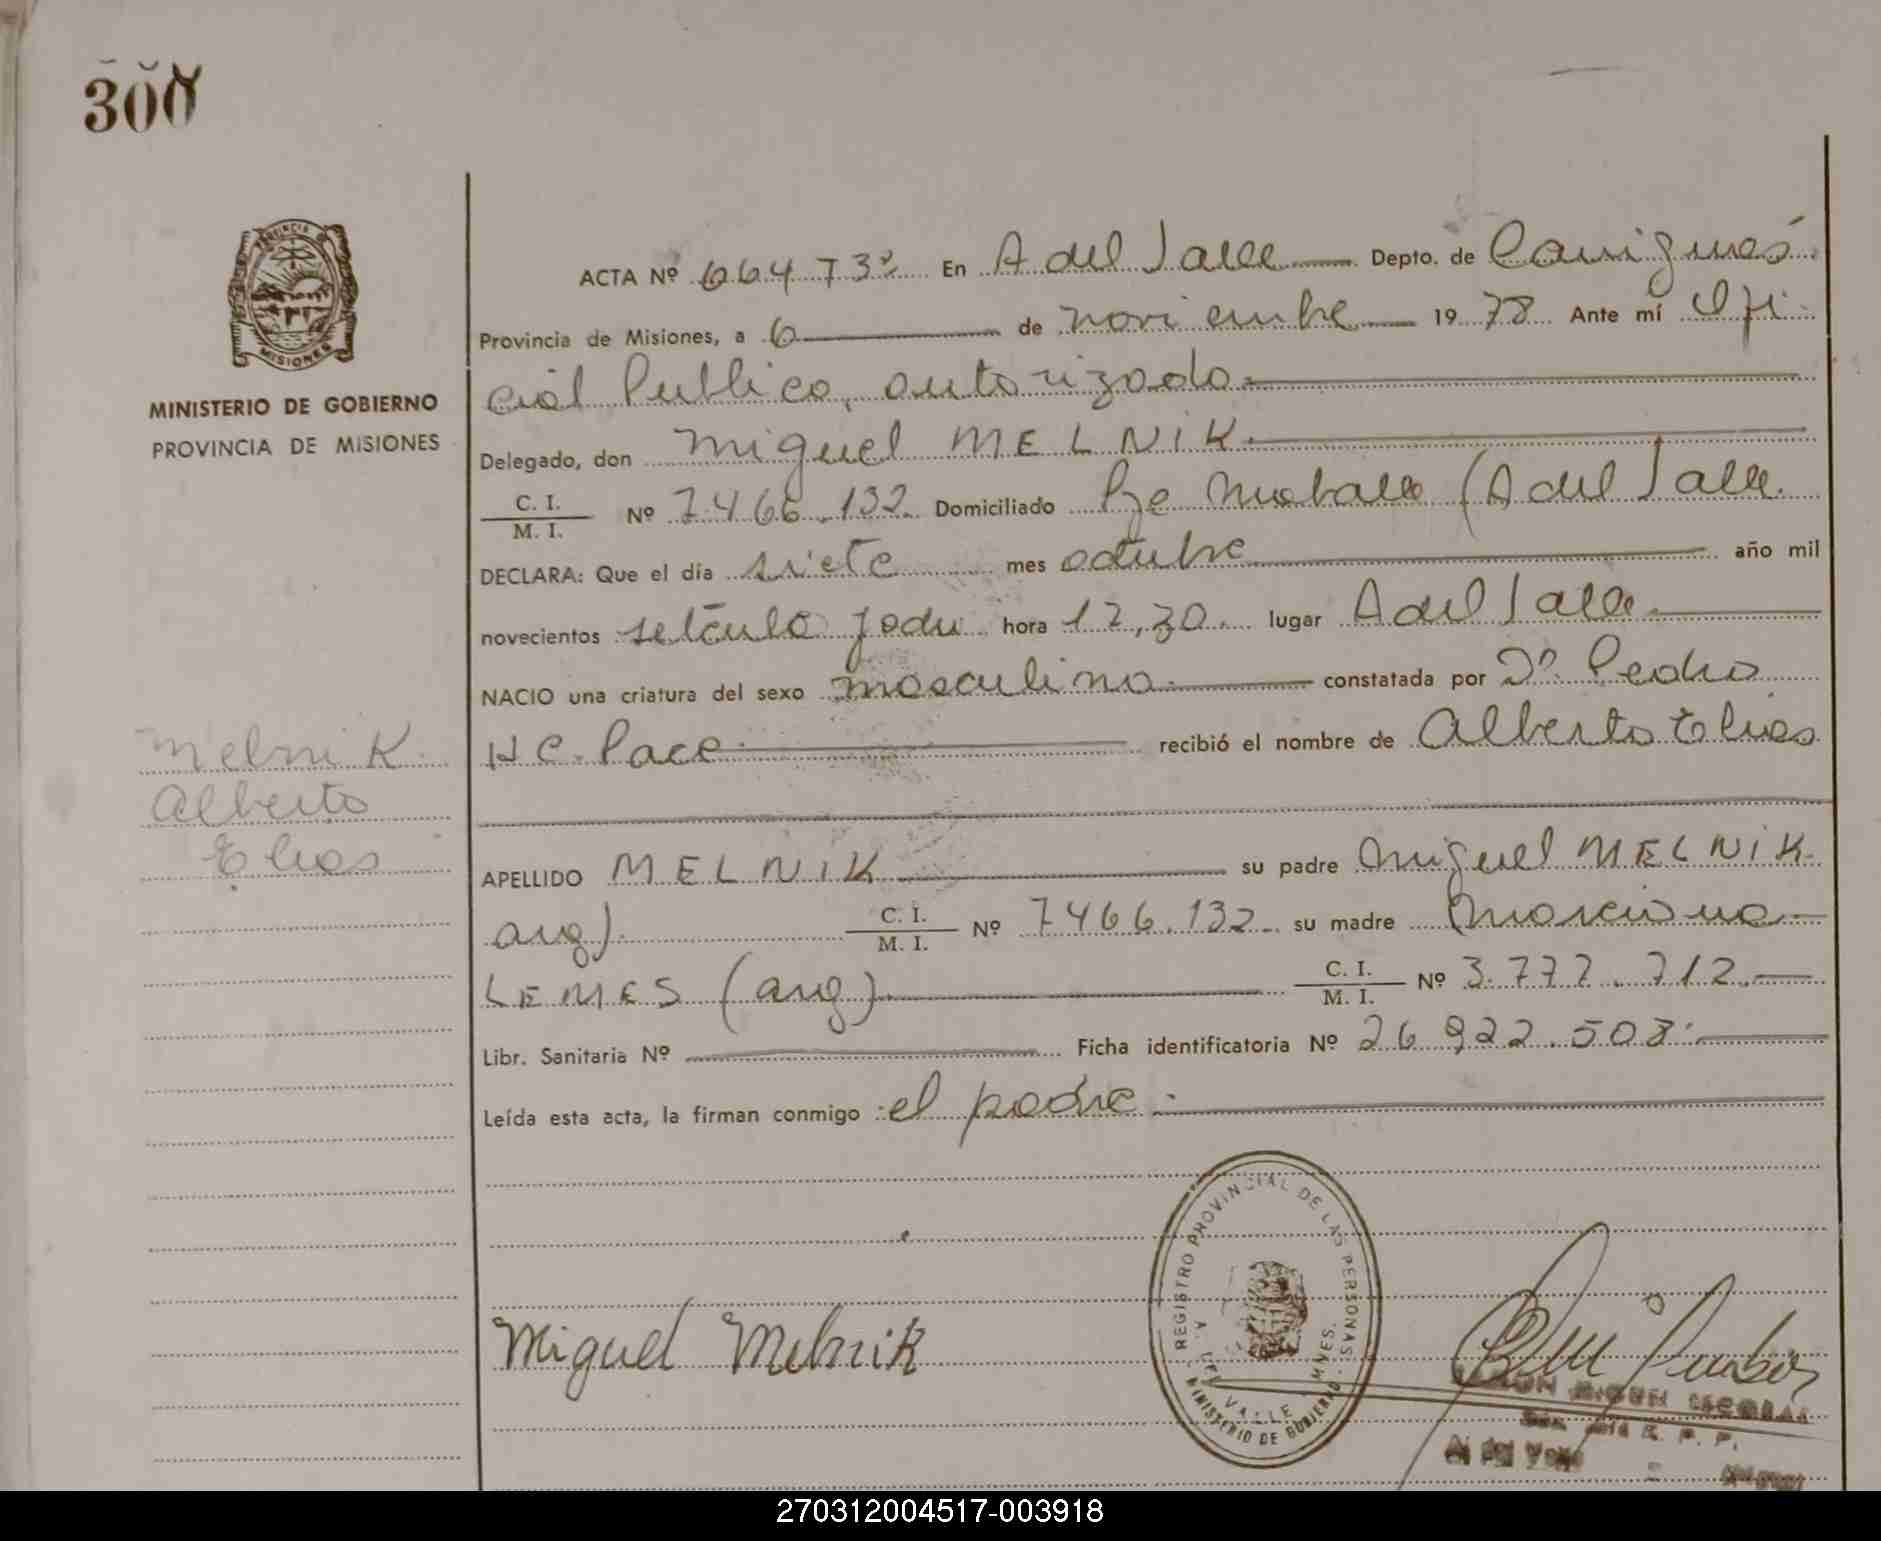 300
PROVINCIA DE
MISIONES
MINISTERIO DE GOBIERNO
PROVINCIA DE MISIONES
ACTA Nº 664 73º En A del Valle Depto. de Cainguás
Provincia de Misiones, a 6 de noviembre 1978 Ante mí Ofi
cial Publico, autorizado
Delegado, don Miguel MELNIK
C. I.
M. I. Nº 7.466.132 Domiciliado (A del Valle
DECLARA: Que el día siete mes octubre año mil
novecientos setenta y ocho hora 12,30 lugar A del Valle
NACIO una criatura del sexo masculino constatada por Dº Pedro
H C. Pace recibió el nombre de Alberto Elias
Melnik
Alberto
Elias
APELLIDO MELNIK su padre Miguel MELNIK
arg) C. I.
M. I. Nº 7466.132 su madre Marciana
LEMES (arg) C. I.
M. I. Nº 3.777.712
Libr. Sanitaria Nº Ficha identificatoria Nº 26 922.508
Leída esta acta, la firman conmigo: el padre
Miguel Melnik
REGISTRO PROVINCIAL DE LAS PERSONAS
A. DEL VALLE MNES.
MINISTERIO DE GOBIERNO
A. del Valle
270312004517-003918